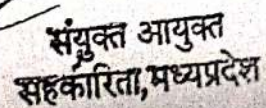 संयुक्त आयुक्त
सहकारिता,मध्यप्रदेश